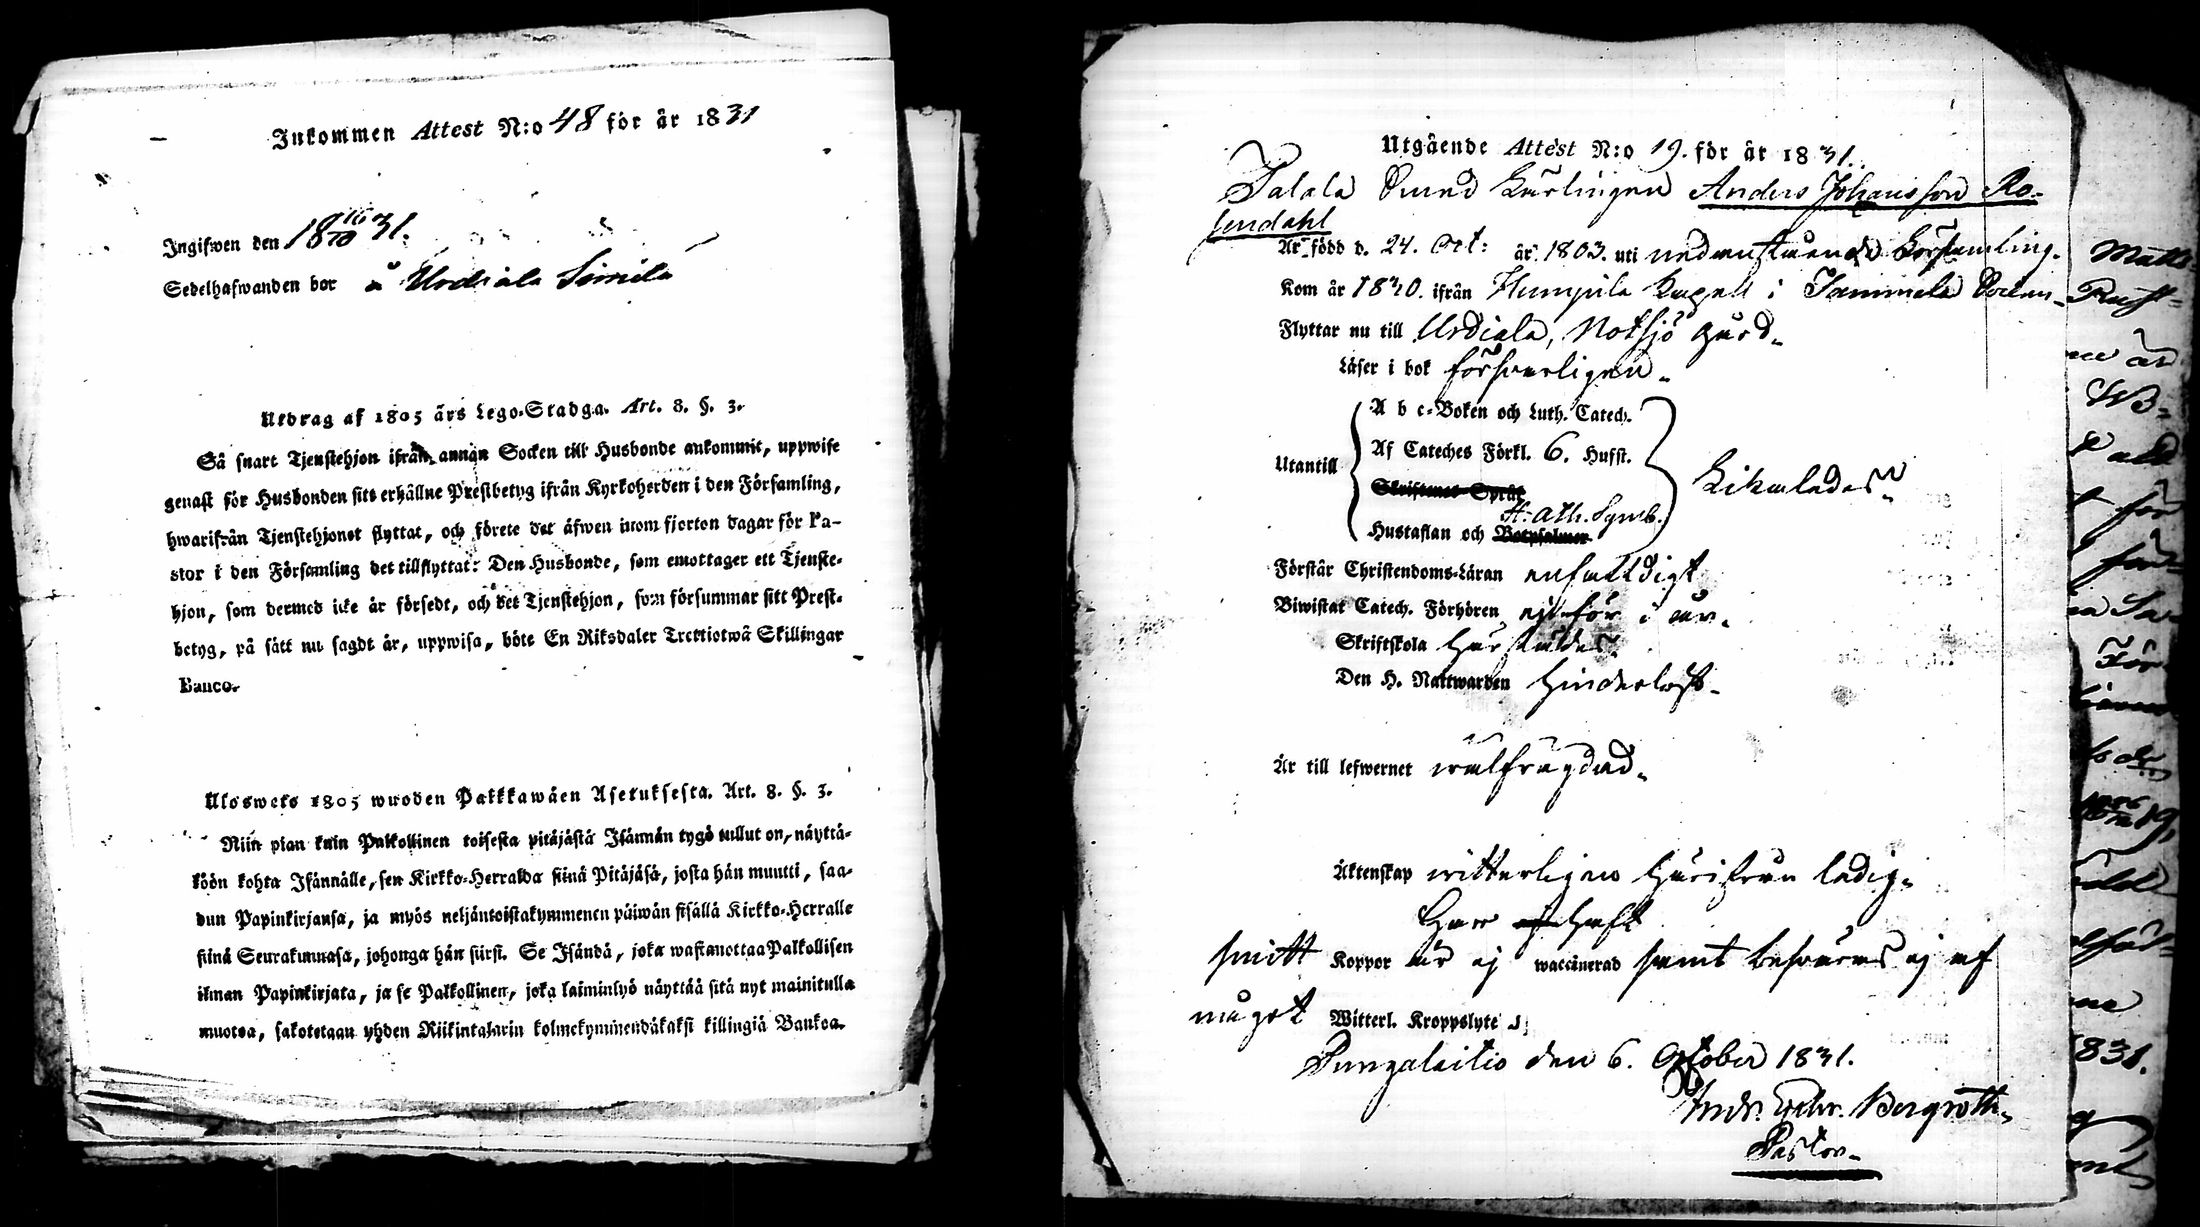 Inkommen Attest N:o 48 för år 1831
Ingifwen den 18 16/10 31.
Sedelhafwanden bor å Urdiala Simila
Utdrag af 1805 års Lego-Stadga. Art. 8. §. 3.
Så snart Tjenstehjon ifrån annan Socken till Husbonde ankommit, uppwise
genast för Husbonden sitt erhållne Prestbetyg ifrån Kyrkoherden i den Församling,
hwarifrån Tjenstehjonet flyttat, och förete det äfwen inom fjorton dagar för Pa-
stor i den Församling det tillflyttat: Den Husbonde, som emottager ett Tjenste-
hjon, som dermed icke är försedt, och det Tjenstehjon, som försummar sitt Prest-
betyg, på sätt nu sagdt är, uppwisa, böte En Riksdaler Trettiotwå Skillingar
Banco.
Ulosweto 1805 wuoden Palkkawäen Asetuksesta. Art. 8. §. 3.
Niin pian kuin Palkollinen toisesta pitäjästä Isännän tygö tullut on, näyttä-
köön kohta Isännälle, sen Kirkko-Herralda siinä Pitäjäsä, josta hän muutti, saa-
dun Papinkirjansa, ja myös neljäntoistakymmenen päiwän sisällä Kirkko-Herralle
siinä Seurakunnasa, johonga hän siirsi. Se Isändä, joka wastanottaa Palkollisen
ilman Papinkirjata, ja se Palkollinen, joka laiminlyö näyttää sitä nyt mainitulla
muotoa, sakotetaan yhden Riikintalarin kolmekymmendäkaksi killingiä Bankoa.
Utgående Attest N:o 19. för år 1831.
Anders Johansson Ro-
sendahl
Är född d. 24. Oct: år 1803. uti nedanstående Församling.
Kom år 1830. ifrån Humpila Kapell i Tammela Socken
Flyttar nu till Urdiala, Notsjö gård.
Läser i bok försvarligen.
Utantill
A b c-Boken och Luth. Catech.
Af Cateches Förkl. 6. Hufst.
Skriftenes Språk
H. Ath. Symb.
Hustaflan och Botpsalmer
Likaledes.
Förstår Christendoms-Läran enfaldigt
Biwistat Catech. Förhören ej för i år.
Skriftskola
Den H. Nattwarden hinderlöst.
Är till lefwernet wälfrägdad.
Äktenskap witterligen härifrån ledig.
Har ej haft
smitt Koppor är ej waccinerad samt besväras ej af
något Witterl. Kroppslyte
Pungalaitio den 6. October 1831.
Bergroth.
Pastor.
1831.